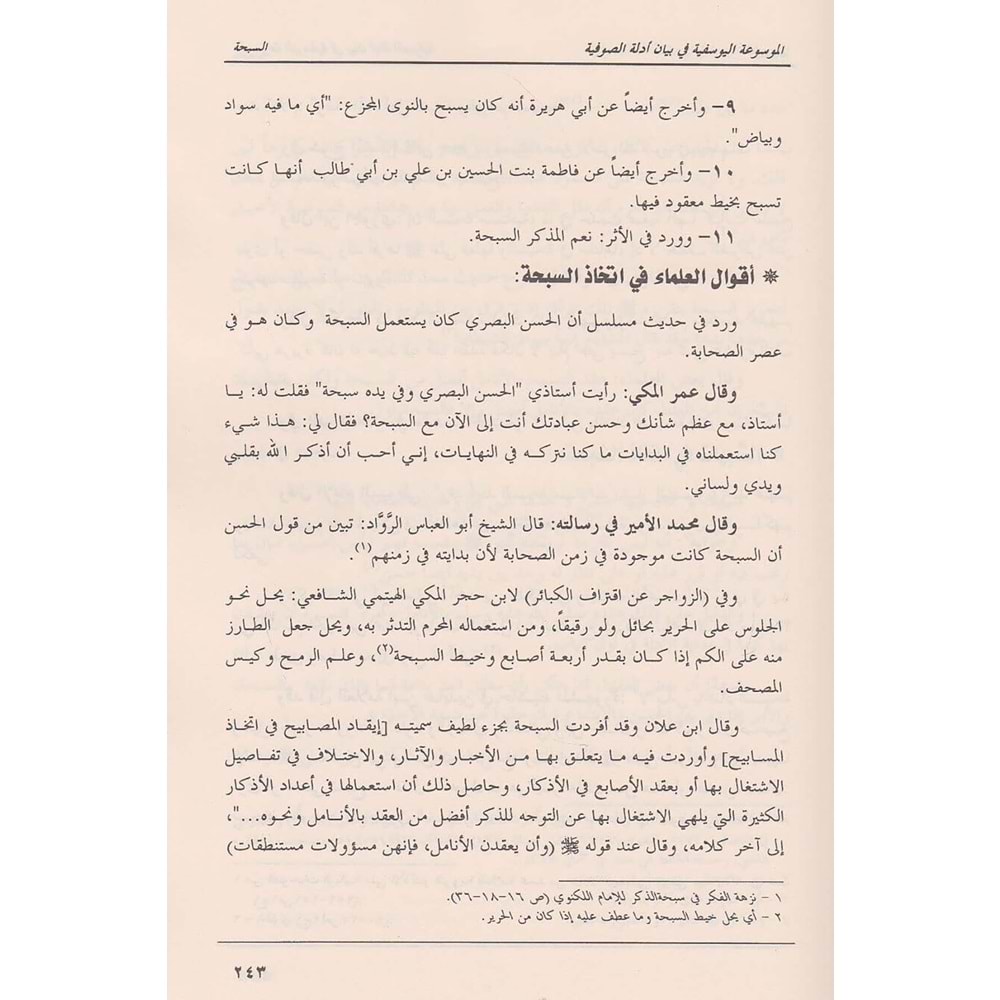 الموسوعة اليوسفية في بيان أدلة الصوفية السبحة
٩- وأخرج أيضاً عن أبي هريرة أنه كان يسبح بالنوى المجزع: "أي ما فيه سواد
وبياض".
١٠- وأخرج أيضاً عن فاطمة بنت الحسين بن علي بن أبي طالب أنها كانت
تسبح بخيط معقود فيها.
١١- وورد في الأثر: نعم المذكر السبحة.
* أقوال العلماء في اتخاذ السبحة:
ورد في حديث مسلسل أن الحسن البصري كان يستعمل السبحة وكان هو في
عصر الصحابة.
وقال عمر المكي: رأيت أستاذي "الحسن البصري وفي يده سبحة" فقلت له: يا
أستاذ، مع عظم شأنك وحسن عبادتك أنت إلى الآن مع السبحة؟ فقال لي: هذا شيء
كنا استعملناه في البدايات ما كنا نتركه في النهايات، إني أحب أن أذكر الله بقلبي
ويدي ولساني.
وقال محمد الأمير في رسالته: قال الشيخ أبو العباس الرَّوَّاد: تبين من قول الحسن
أن السبحة كانت موجودة في زمن الصحابة لأن بدايته في زمنهم(١).
وفي (الزواجر عن اقتراف الكبائر) لابن حجر المكي الهيتمي الشافعي: يحل نحو
الجلوس على الحرير بحائل ولو رقيقاً، ومن استعماله المحرم التدثر به، ويحل جعل الطارز
منه على الكم إذا كان بقدر أربعة أصابع وخيط السبحة(٢)، وعلم الرمح وكيس
المصحف.
وقال ابن علان وقد أفردت السبحة بجزء لطيف سميته [إيقاد المصابيح في اتخاذ
المسابيح] وأوردت فيه ما يتعلق بها من الأخبار والآثار، والاختلاف في تفاصيل
الاشتغال بها أو بعقد الأصابع في الأذكار، وحاصل ذلك أن استعمالها في أعداد الأذكار
الكثيرة التي يلهي الاشتغال بها عن التوجه للذكر أفضل من العقد بالأنامل ونحوه..."،
إلى آخر كلامه، وقال عند قوله ﷺ (وأن يعقدن الأنامل، فإنهن مسؤولات مستنطقات)
١ - نزهة الفكر في سبحةالذكر للإمام اللكنوي (ص ١٦-١٨-٣٦).
٢ - أي يحل خيط السبحة وما عطف عليه إذا كان من الحرير.
٢٤٣